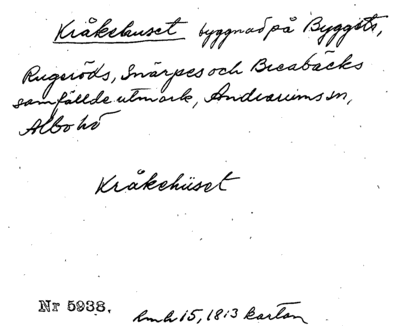 Kråkehuset byggnad på Byggets,
Rugeröds, Snärpes och Breabäcks
samfällde utmark, Andrarums sn,
Albo hd
Kråkehüset
Nr 5938. Lmh 15, 1813 kartan